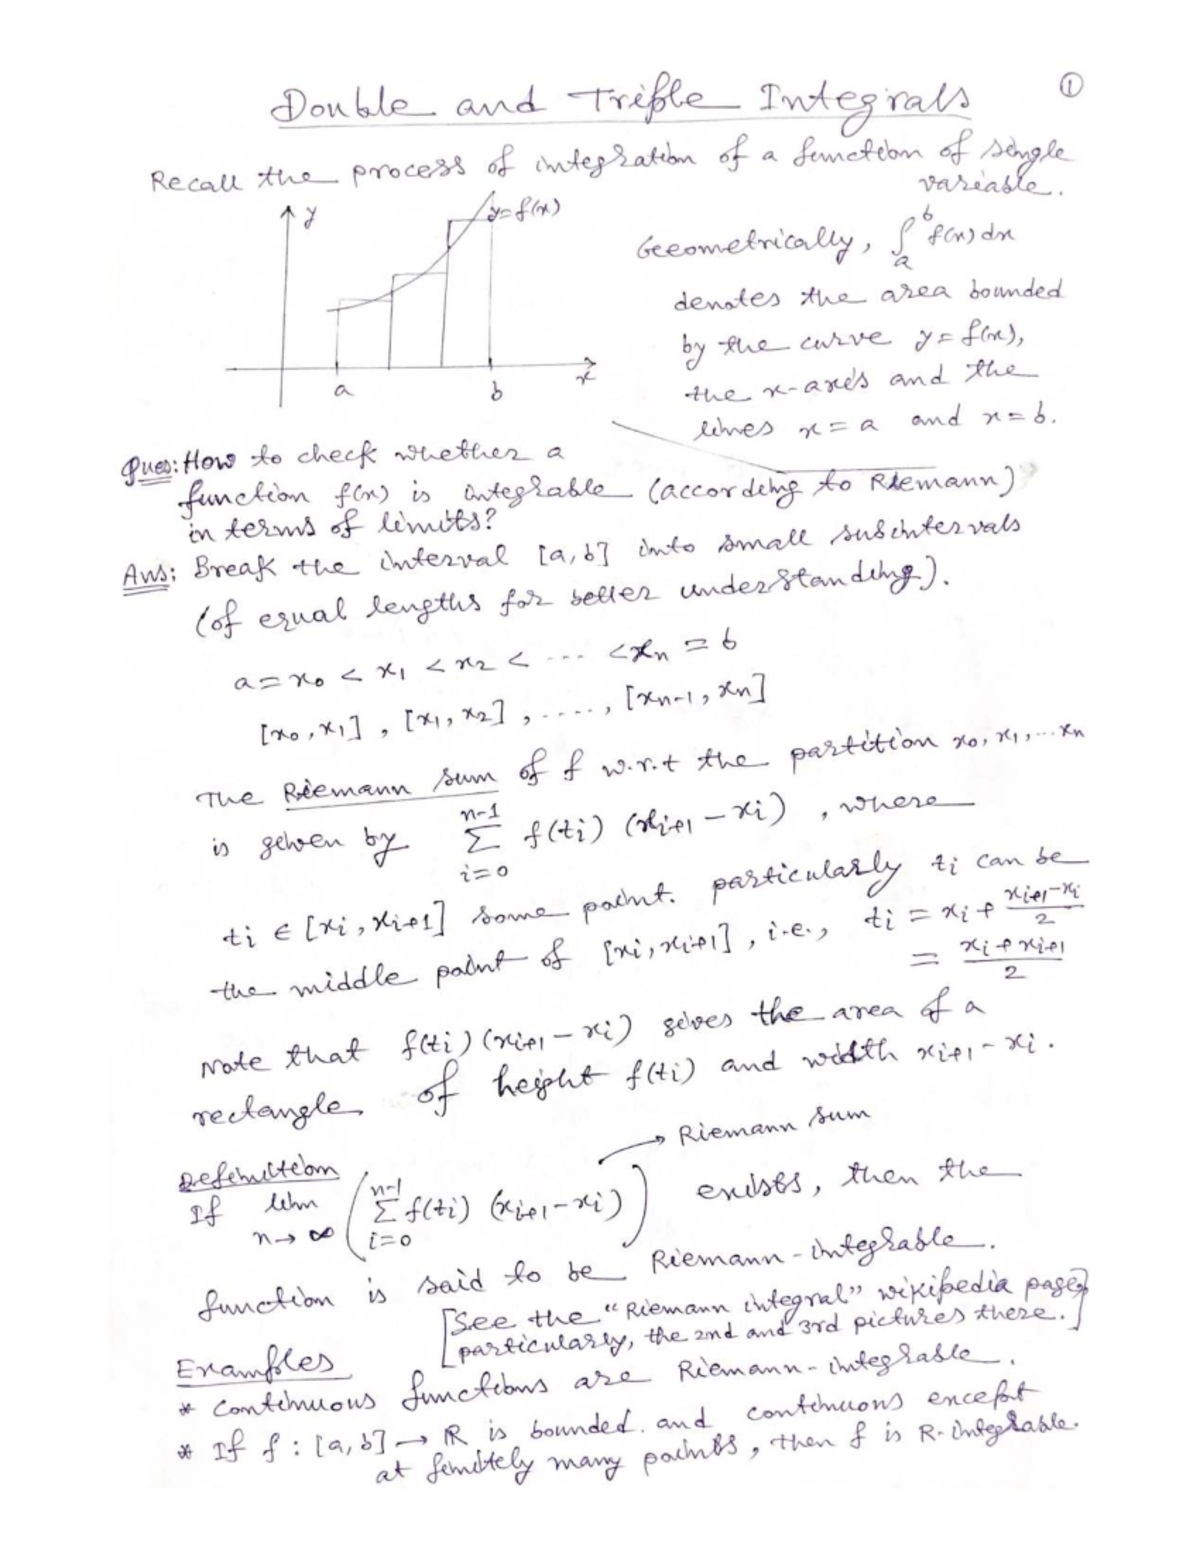 ①
Double and Triple Integrals
Recall the process of integration of a function of single
variable.
y
y=f(x)
x
a
b
Geeometrically, ∫_a^b f(x) dx
denotes the area bounded
by the curve y = f(x),
the x-axis and the
lines x = a and x = b.
Ques: How to check whether a
function f(x) is integrable (according to Riemann)
in terms of limits?
Ans: Break the interval [a, b] into small subintervals
(of equal lengths for better understanding).
a = x₀ < x₁ < x₂ < ... < xₙ = b
[x₀, x₁], [x₁, x₂], ....., [xₙ₋₁, xₙ]
The Riemann sum of f w.r.t the partition x₀, x₁, ... xₙ
is given by Σ_{i=0}^{n-1} f(tᵢ) (xᵢ₊₁ - xᵢ), where
tᵢ ∈ [xᵢ, xᵢ₊₁] some point. particularly tᵢ can be
the middle point of [xᵢ, xᵢ₊₁], i.e., tᵢ = xᵢ + (xᵢ₊₁ - xᵢ)/2
= (xᵢ + xᵢ₊₁)/2
Note that f(tᵢ) (xᵢ₊₁ - xᵢ) gives the area of a
rectangle of height f(tᵢ) and width xᵢ₊₁ - xᵢ.
→ Riemann sum
Definition
If lim_{n→∞} (Σ_{i=0}^{n-1} f(tᵢ) (xᵢ₊₁ - xᵢ)) exists, then the
function is said to be Riemann-integrable.
[See the "Riemann integral" wikipedia page,
particularly, the 2nd and 3rd pictures there.]
Examples
* Continuous functions are Riemann-integrable.
* If f : [a, b] → ℝ is bounded and continuous except
at finitely many points, then f is R-integrable.